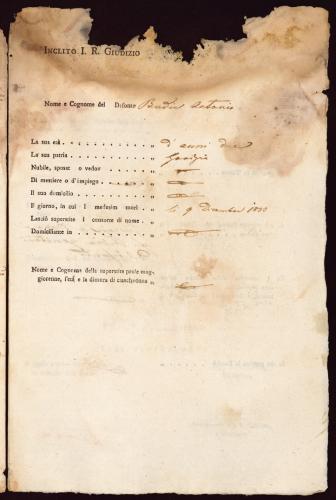 INCLITO I. R. GIUDIZIO
Nome e Cognome del Defonto Antonio
La sua età . . . . . . . . . . . „ d'anni due
La sua patria . . . . . . . . . . „ Gorizia
Nubile, sposat o vedov . . . . . „
Di mestiere o d'impiego . . . . . „
Il suo domicilio . . . . . . . . „
Il giorno, in cui l medesim morì . „ li 9 Dicembre
Lasciò superstite l consorte di nome . „
Domiciliante in . . . . . . . . „
Nome e Cognome della superstite prole mag-
giorenne, l'età e la dimora di ciascheduna „